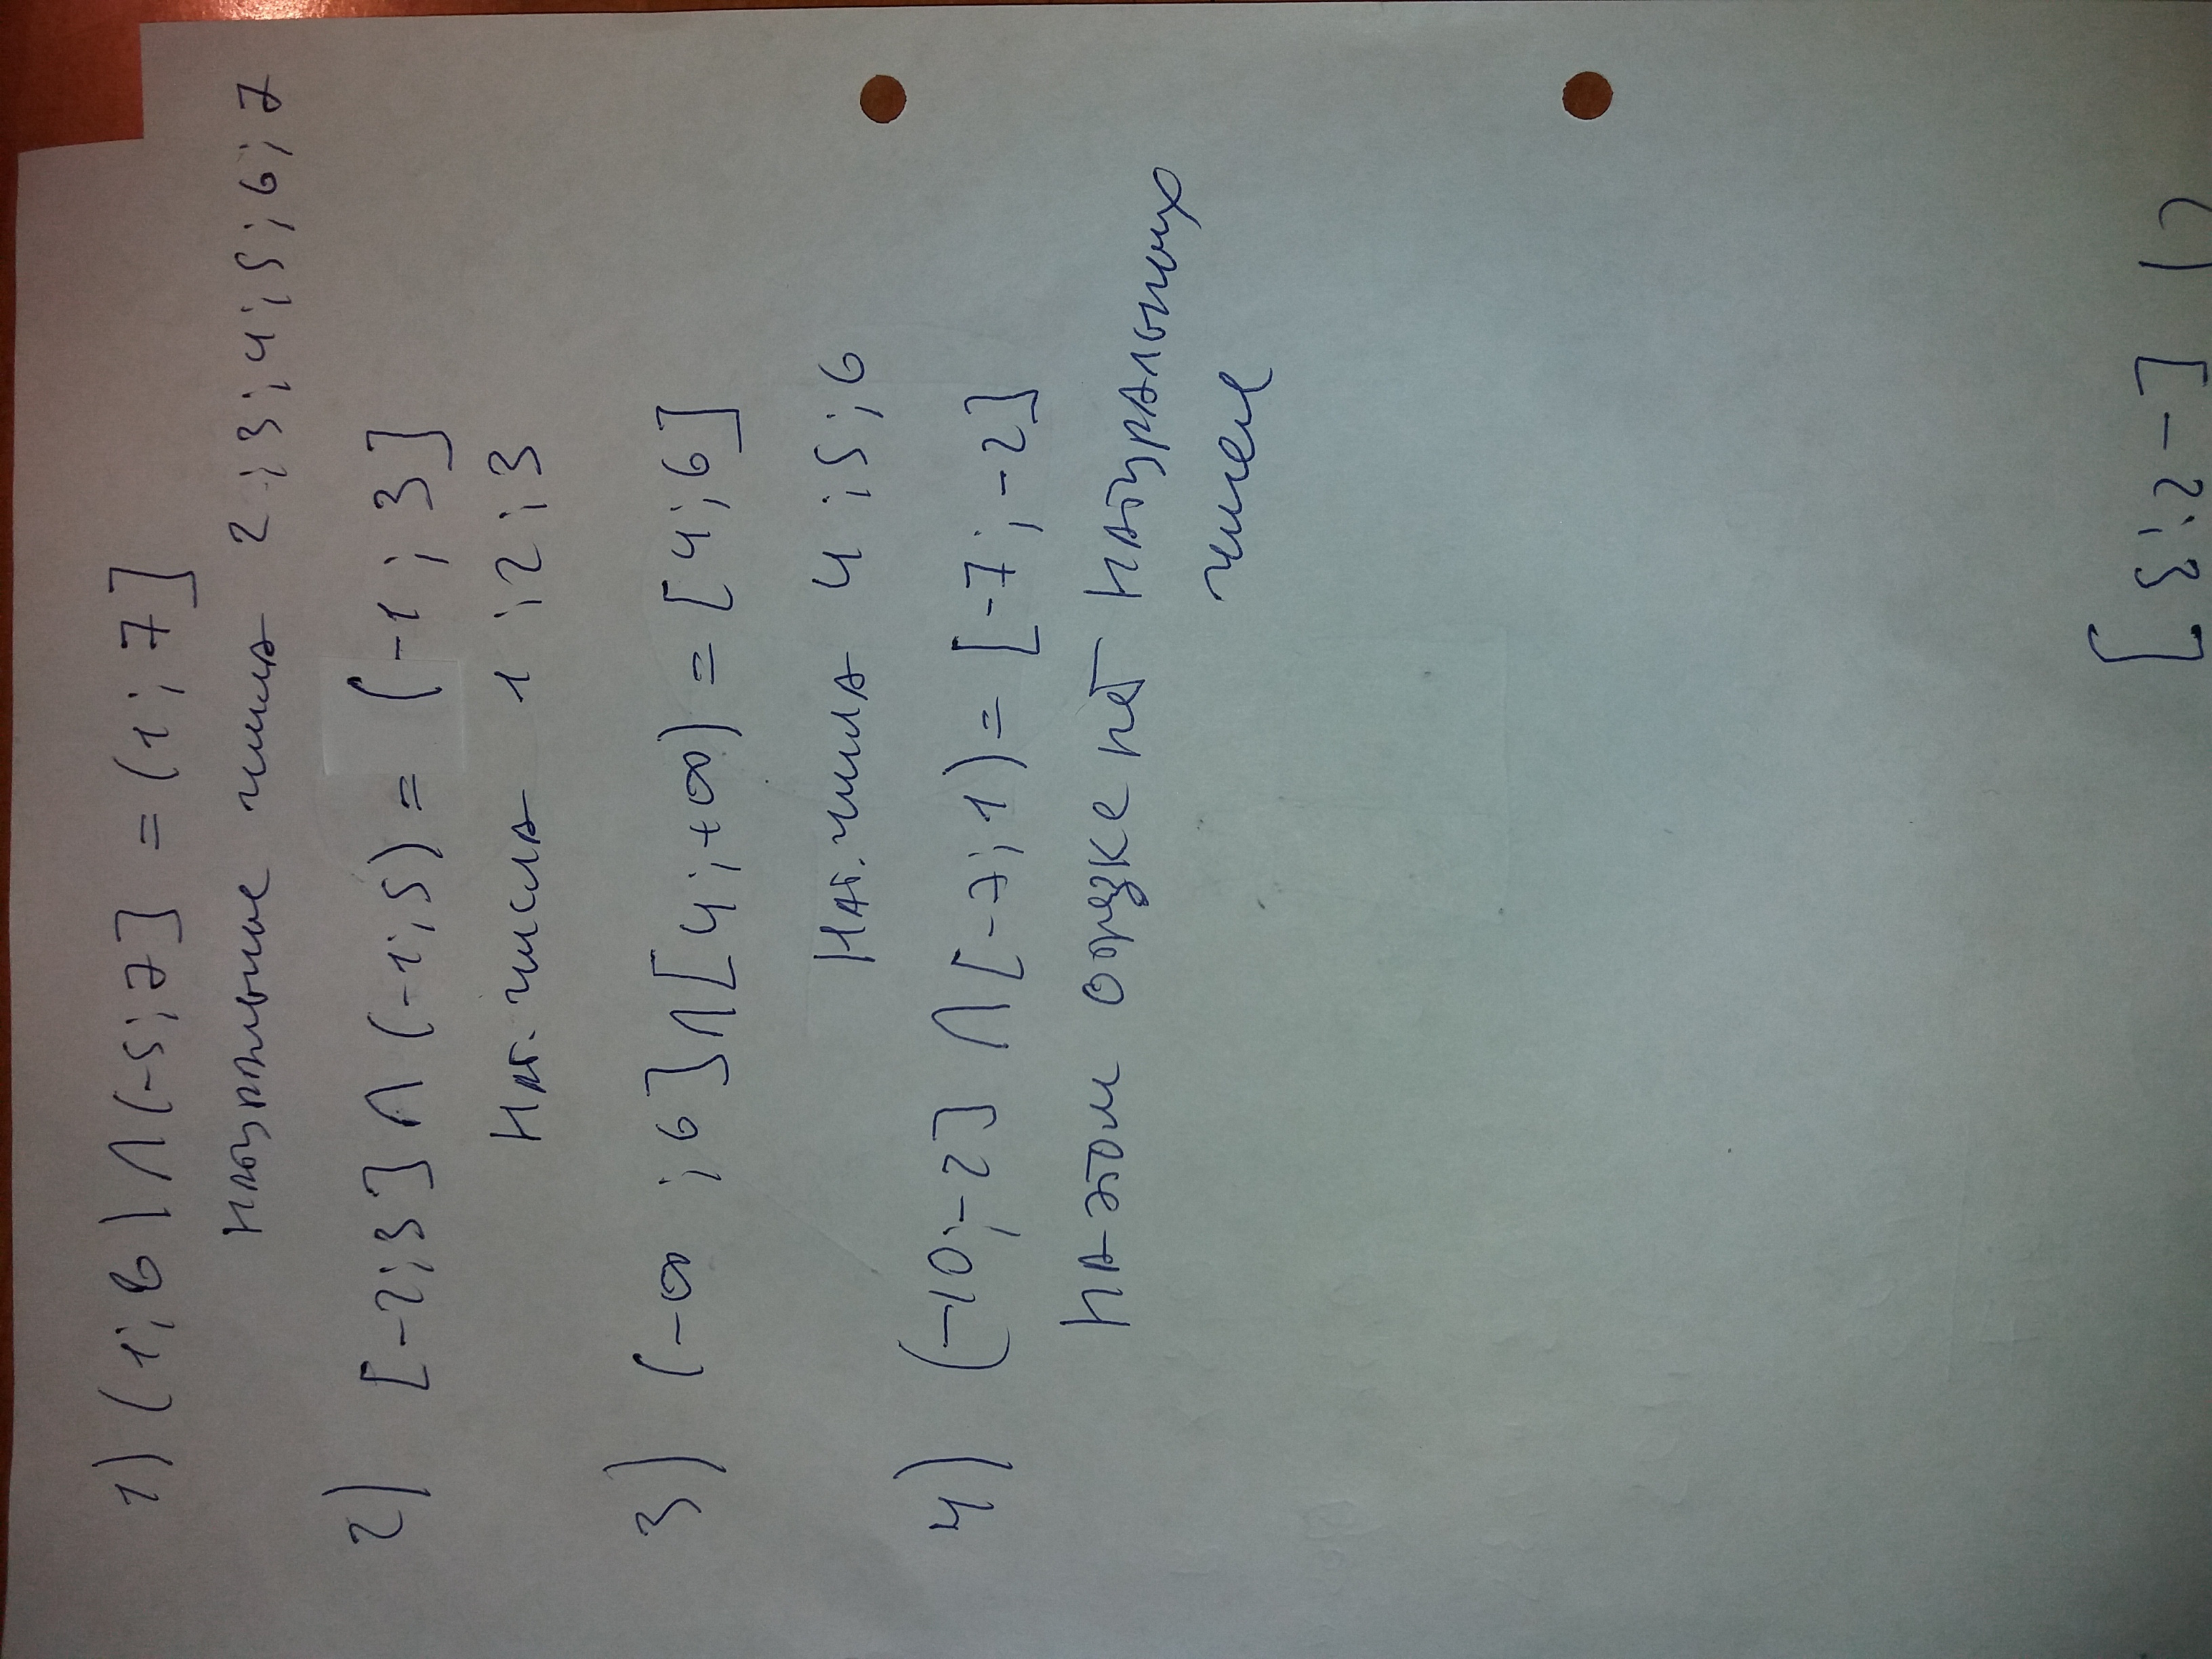 1) (1; 8) ∩ (-5; 7] = (1; 7]
натуральные числа 2; 3; 4; 5; 6; 7
2) [-2; 3] ∩ (-1; 5) = (-1; 3]
Нат. числа 1; 2; 3
3) (-∞; 6] ∩ [4; +∞) = [4; 6]
Нат. числа 4; 5; 6
4) (-10; -2] ∩ [-7; 1) = [-7; -2]
на этом отрезке нет натуральных
чисел